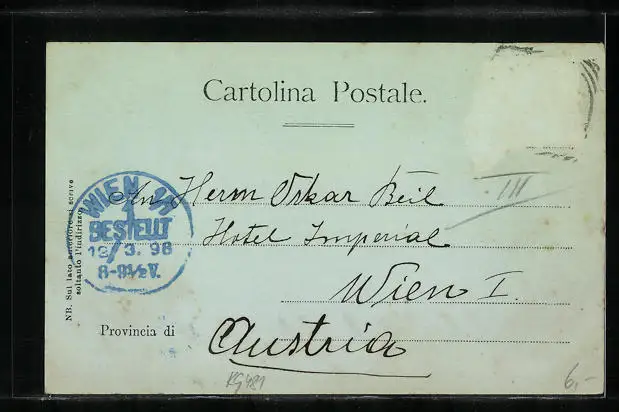 Cartolina Postale.
III
An Herrn Oskar Beil
Hotel Imperial
Wien I.
Provincia di
Austria
WIEN
1
BESTELLT
3. 98
8-9½V.
NB. Sul lato anteriore si scrive
soltanto l'indirizzo.
6,-